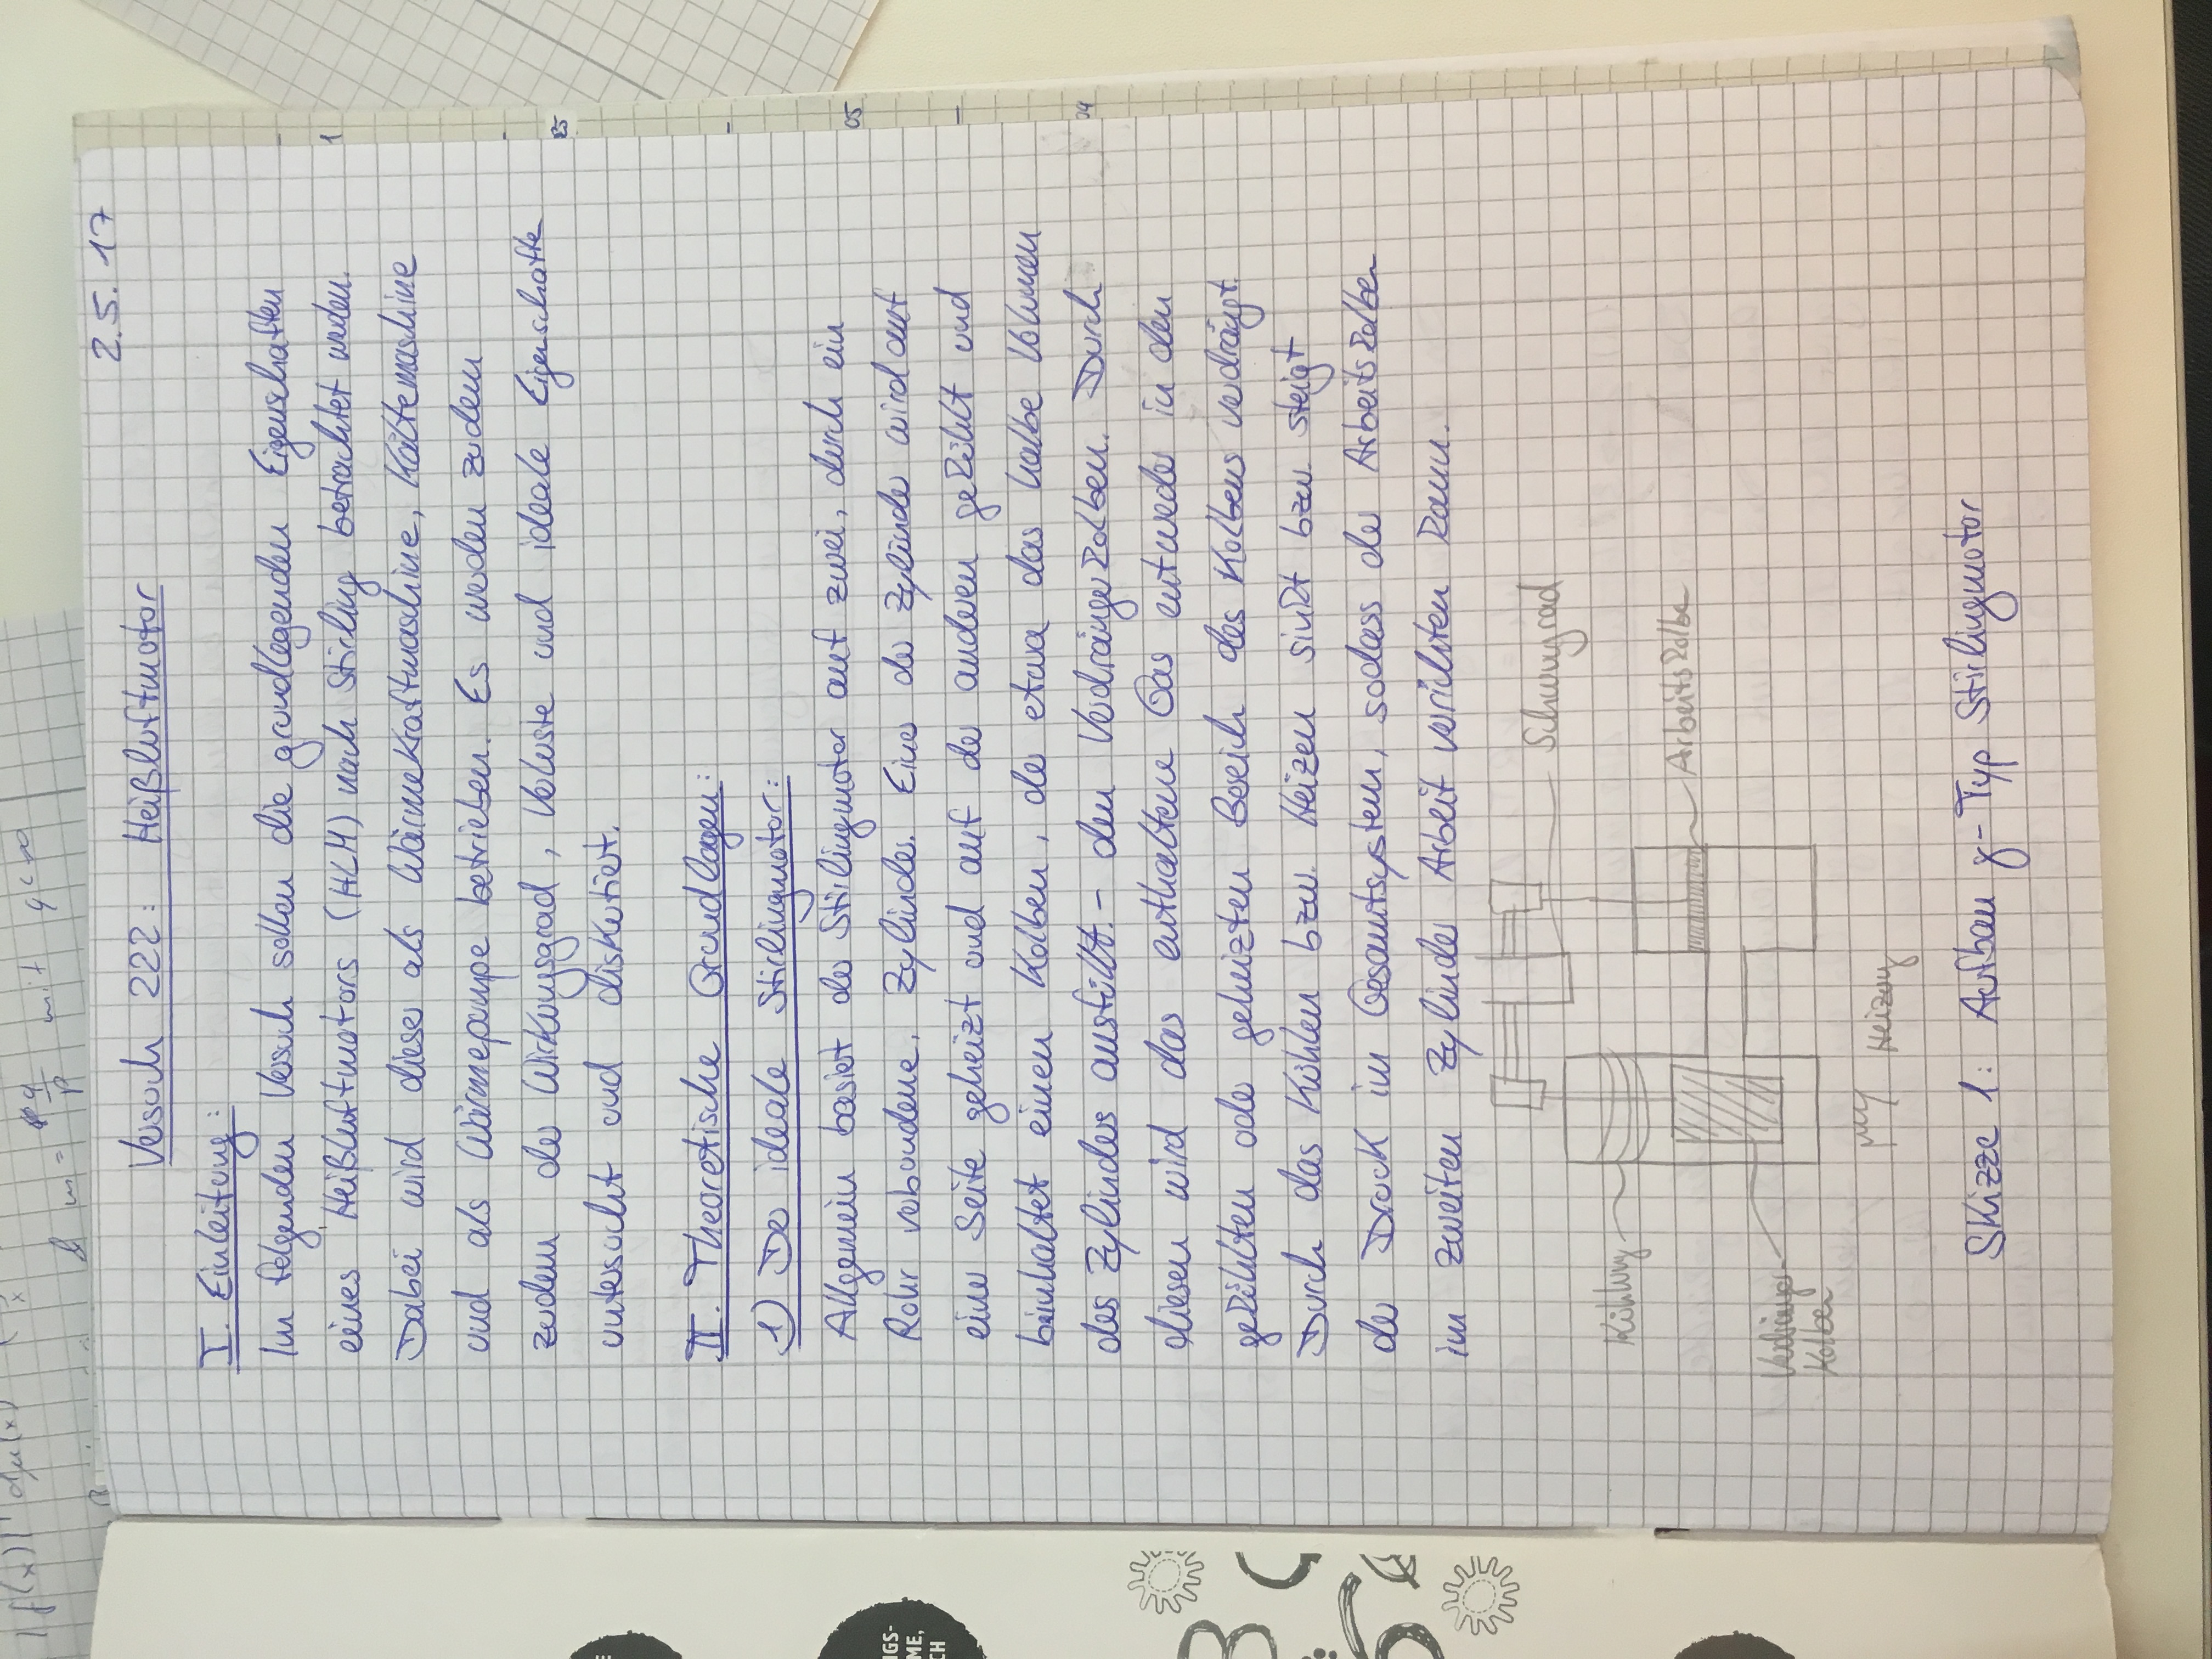 m = q/p mit q<∞
2.5.17
Versuch 222: Heißluftmotor
I. Einleitung:
Im folgenden Versuch sollen die grundlegenden Eigenschaften
eines Heißluftmotors (HLM) nach Stirling betrachtet werden.
Dabei wird dieser als Wärmekraftmaschine, Kältemaschine
und als Wärmepumpe betrieben. Es werden zudem
zudem der Wirkungsgrad, Verluste und ideale Eigenschaften
untersucht und diskutiert.
II. Theoretische Grundlagen:
1) Der ideale Stirlingmotor:
Allgemein basiert der Stirlingmotor auf zwei, durch ein
Rohr verbundene, Zylinder. Einer der Zylinder wird auf
einer Seite geheizt und auf der anderen gekühlt und
beinhaltet einen Kolben, der etwa das halbe Volumen
des Zylinders ausfüllt. - den Verdrängerkolben. Durch
diesen wird das enthaltene Gas entweder in den
gekühlten oder geheizten Bereich des Kolbens verdrängt.
Durch das Kühlen bzw. Heizen sinkt bzw. steigt
der Druck im Gesamtsystem, sodass der Arbeitskolben
im zweiten Zylinder Arbeit verichten kann.
Schwungrad
Kühlung
Arbeitskolben
Verdränger-
Kolben
Heizung
Skizze 1: Aufbau γ-Typ Stirlingmotor
IGS-
ME,
CH
1
25
05
04